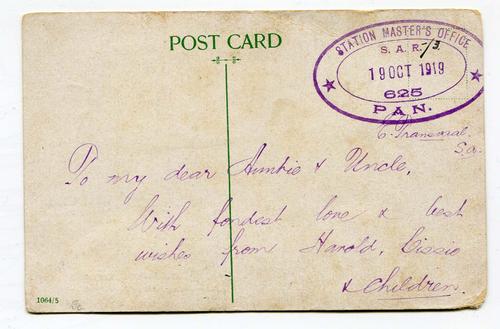 POST CARD
STATION MASTER'S OFFICE
S. A. R.
19 OCT 1919
625
PAN.
Transvaal.
S.A.
To my dear Auntie & Uncle,
With fondest love & best
wishes from Harold, Cissie
& Children.
1064/5